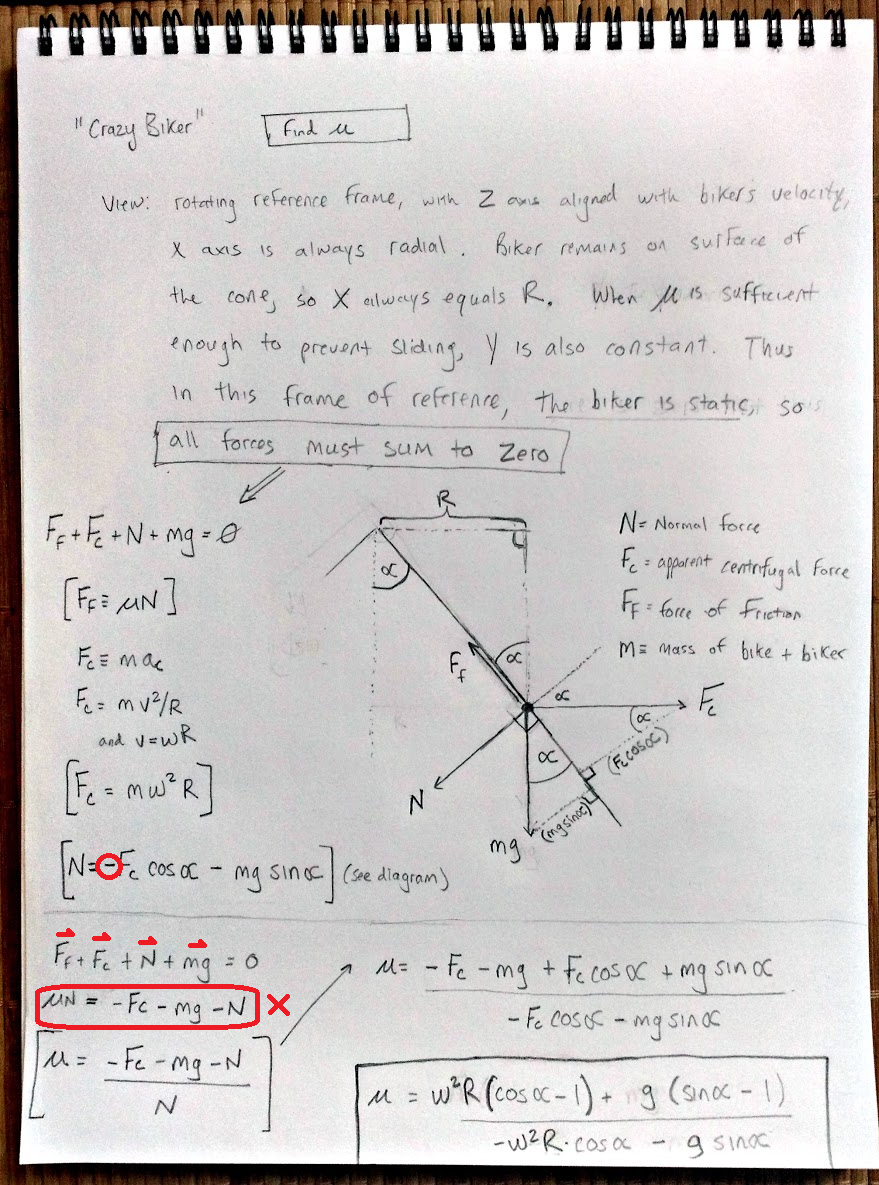 "Crazy Biker"
Find μ
View: rotating reference frame, with Z axis aligned with bikers velocity,
X axis is always radial. Biker remains on surface of
the cone, so X always equals R. When μ is sufficient
enough to prevent sliding, Y is also constant. Thus
in this frame of reference, the biker is static, so
all forces must sum to zero
F_f + F_c + N + mg = 0
[F_f ≡ μN]
F_c ≡ ma_c
F_c = mv²/R
and v=ωR
[F_c = mω²R]
[N = -F_c cosα - mg sinα] (see diagram)
R
α
α
F_f
α
F_c
α
α
N
mg
(F_c cosα)
(mg sinα)
N = Normal force
F_c = apparent centrifugal force
F_f = force of friction
m ≡ mass of bike + biker
F_f + F_c + N + mg = 0
μN = -F_c - mg - N ×
[μ = (-F_c - mg - N) / N]
μ = (-F_c - mg + F_c cosα + mg sinα) / (-F_c cosα - mg sinα)
μ = (ω²R(cosα - 1) + g(sinα - 1)) / (-ω²R·cosα - g sinα)